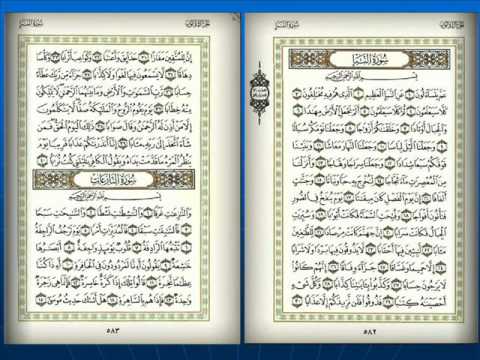 سُورَةُ النَّبَإِ
الجُزْءُ الثَّلَاثُونَ
سُورَةُ النَّبَإِ
بِسْمِ اللَّهِ الرَّحْمَٰنِ الرَّحِيمِ
عَمَّ يَتَسَاءَلُونَ ١ عَنِ النَّبَإِ الْعَظِيمِ ٢ الَّذِي هُمْ فِيهِ مُخْتَلِفُونَ ٣
كَلَّا سَيَعْلَمُونَ ٤ ثُمَّ كَلَّا سَيَعْلَمُونَ ٥ أَلَمْ نَجْعَلِ الْأَرْضَ مِهَادًا ٦
وَالْجِبَالَ أَوْتَادًا ٧ وَخَلَقْنَاكُمْ أَزْوَاجًا ٨ وَجَعَلْنَا نَوْمَكُمْ سُبَاتًا ٩
وَجَعَلْنَا اللَّيْلَ لِبَاسًا ١٠ وَجَعَلْنَا النَّهَارَ مَعَاشًا ١١ وَبَنَيْنَا
فَوْقَكُمْ سَبْعًا شِدَادًا ١٢ وَجَعَلْنَا سِرَاجًا وَهَّاجًا ١٣ وَأَنزَلْنَا
مِنَ الْمُعْصِرَاتِ مَاءً ثَجَّاجًا ١٤ لِّنُخْرِجَ بِهِ حَبًّا وَنَبَاتًا ١٥ وَجَنَّاتٍ
أَلْفَافًا ١٦ إِنَّ يَوْمَ الْفَصْلِ كَانَ مِيقَاتًا ١٧ يَوْمَ يُنفَخُ فِي الصُّورِ
فَتَأْتُونَ أَفْوَاجًا ١٨ وَفُتِحَتِ السَّمَاءُ فَكَانَتْ أَبْوَابًا ١٩ وَسُيِّرَتِ
الْجِبَالُ فَكَانَتْ سَرَابًا ٢٠ إِنَّ جَهَنَّمَ كَانَتْ مِرْصَادًا ٢١ لِّلطَّاغِينَ
مَآبًا ٢٢ لَّابِثِينَ فِيهَا أَحْقَابًا ٢٣ لَّا يَذُوقُونَ فِيهَا بَرْدًا وَلَا شَرَابًا ٢٤
إِلَّا حَمِيمًا وَغَسَّاقًا ٢٥ جَزَاءً وِفَاقًا ٢٦ إِنَّهُمْ كَانُوا
لَا يَرْجُونَ حِسَابًا ٢٧ وَكَذَّبُوا بِآيَاتِنَا كِذَّابًا ٢٨ وَكُلَّ شَيْءٍ
أَحْصَيْنَاهُ كِتَابًا ٢٩ فَذُوقُوا فَلَن نَّزِيدَكُمْ إِلَّا عَذَابًا ٣٠
٥٨٢
سُورَةُ النَّبَإِ
الجُزْءُ الثَّلَاثُونَ
إِنَّ لِلْمُتَّقِينَ مَفَازًا ٣١ حَدَائِقَ وَأَعْنَابًا ٣٢ وَكَوَاعِبَ أَتْرَابًا ٣٣ وَكَأْسًا
دِهَاقًا ٣٤ لَّا يَسْمَعُونَ فِيهَا لَغْوًا وَلَا كِذَّابًا ٣٥ جَزَاءً مِّن رَّبِّكَ عَطَاءً
حِسَابًا ٣٦ رَّبِّ السَّمَاوَاتِ وَالْأَرْضِ وَمَا بَيْنَهُمَا الرَّحْمَٰنِ لَا يَمْلِكُونَ
مِنْهُ خِطَابًا ٣٧ يَوْمَ يَقُومُ الرُّوحُ وَالْمَلَائِكَةُ صَفًّا لَّا يَتَكَلَّمُونَ
إِلَّا مَنْ أَذِنَ لَهُ الرَّحْمَٰنُ وَقَالَ صَوَابًا ٣٨ ذَٰلِكَ الْيَوْمُ الْحَقُّ فَمَن
شَاءَ اتَّخَذَ إِلَىٰ رَبِّهِ مَآبًا ٣٩ إِنَّا أَنذَرْنَاكُمْ عَذَابًا قَرِيبًا يَوْمَ
يَنظُرُ الْمَرْءُ مَا قَدَّمَتْ يَدَاهُ وَيَقُولُ الْكَافِرُ يَا لَيْتَنِي كُنتُ تُرَابًا ٤٠
سُورَةُ النَّازِعَاتِ
بِسْمِ اللَّهِ الرَّحْمَٰنِ الرَّحِيمِ
وَالنَّازِعَاتِ غَرْقًا ١ وَالنَّاشِطَاتِ نَشْطًا ٢ وَالسَّابِحَاتِ سَبْحًا
٣ فَالسَّابِقَاتِ سَبْقًا ٤ فَالْمُدَبِّرَاتِ أَمْرًا ٥ يَوْمَ تَرْجُفُ الرَّاجِفَةُ
٦ تَتْبَعُهَا الرَّادِفَةُ ٧ قُلُوبٌ يَوْمَئِذٍ وَاجِفَةٌ ٨ أَبْصَارُهَا
خَاشِعَةٌ ٩ يَقُولُونَ أَإِنَّا لَمَرْدُودُونَ فِي الْحَافِرَةِ ١٠ أَإِذَا كُنَّا
عِظَامًا نَّخِرَةً ١١ قَالُوا تِلْكَ إِذًا كَرَّةٌ خَاسِرَةٌ ١٢ فَإِنَّمَا هِيَ زَجْرَةٌ
وَاحِدَةٌ ١٣ فَإِذَا هُم بِالسَّاهِرَةِ ١٤ هَلْ أَتَاكَ حَدِيثُ مُوسَىٰ ١٥
٥٨٣